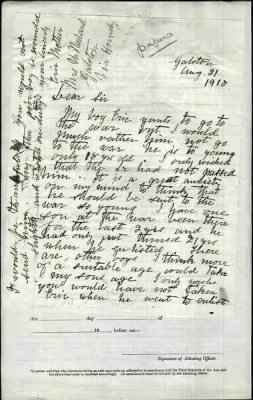 papers
Galston
Aug. 31
1915
Dear Sir
My boy Eric wants to go to
the war, but I would
much rather him not go
to the war he is to young
only 18 yrs old I only wished
that the Dr had not passed
him. It is a great
on my mind to think that
he should be sent to the
war so young I have one
son at the war been there
for the last 2 yrs and he
had only just turned 21 yrs
when he enlisted. There
are other boys I think more
of a suitable age, would take
my sons age I only wish
you would have not taken
Eric when he went to enlist
this day of
19 , before me—
Signature of Attesting Officer.
I would be thankful if you would not
send him my boy is wounded
yours sincerely
Eric Mother
Mrs
Galston
Via Hornsby